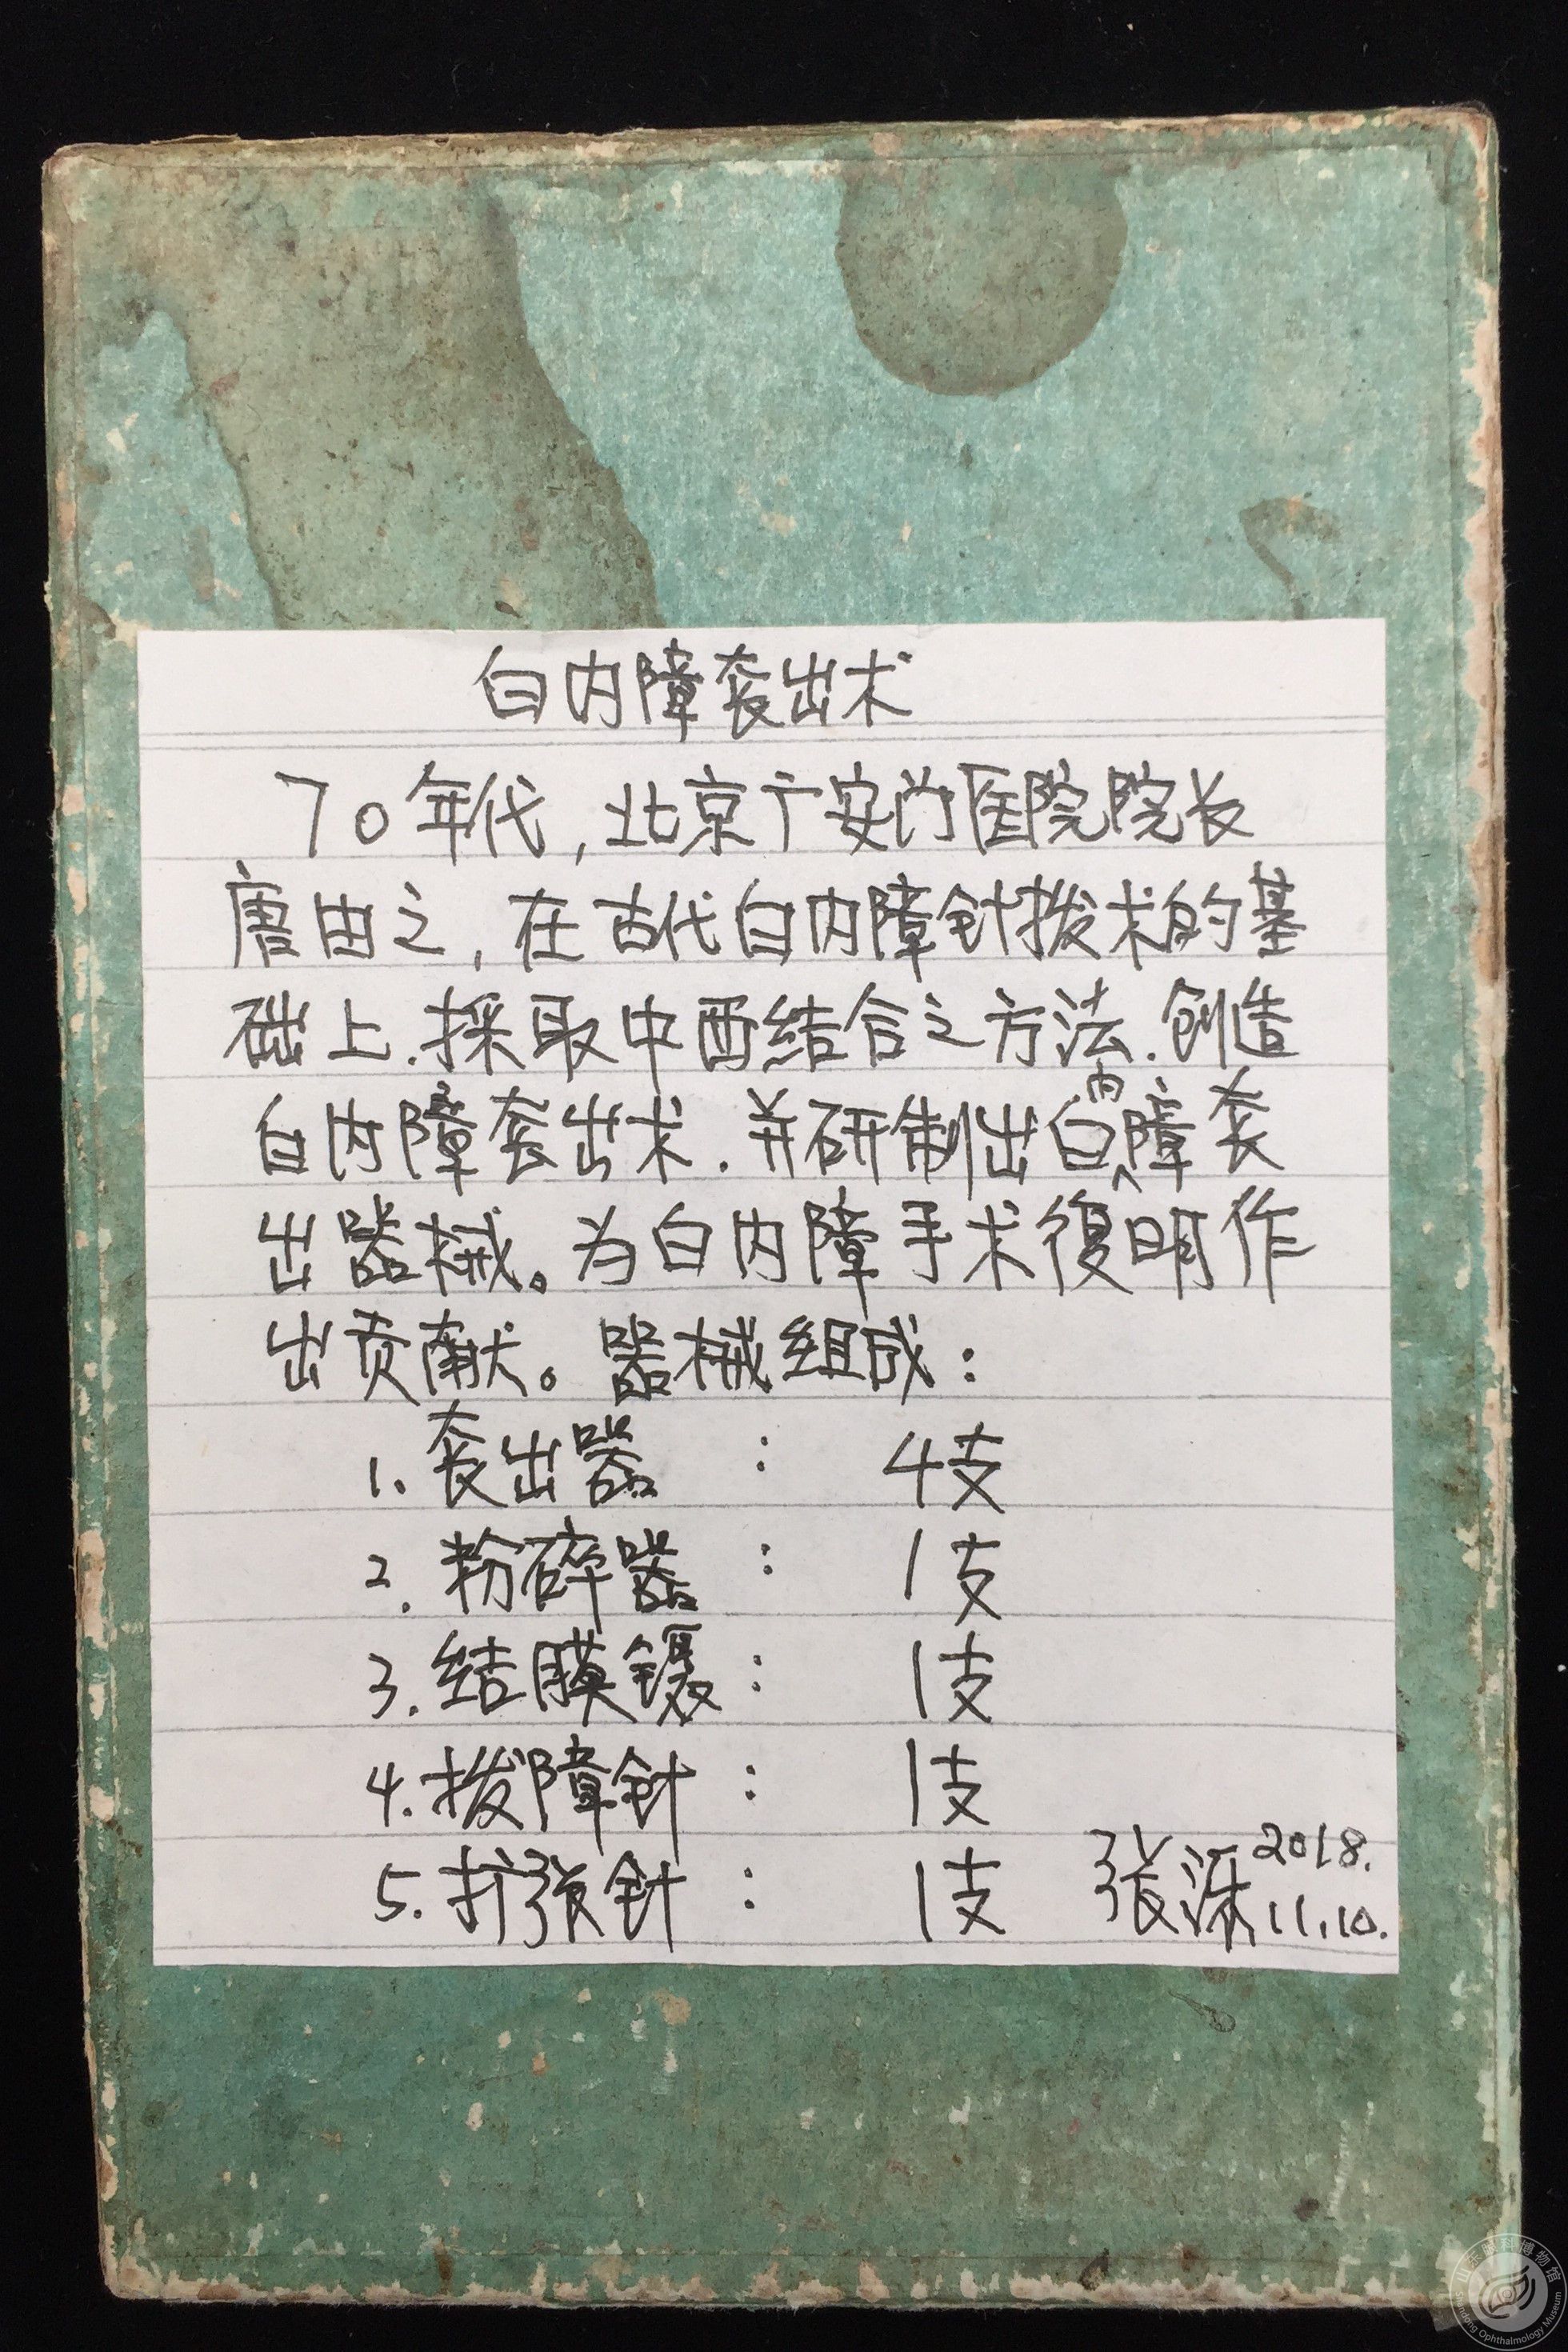 白内障套出术
70年代,北京广安门医院院长
唐由之,在古代白内障针拨术的基
础上.採取中西结合之方法.创造
白内障套出术.并研制出白内障套
出器械。为白内障手术復明作
出贡献。器械组成:
1.套出器 : 4支
2.粉碎器 : 1支
3.结膜镊 : 1支
4.拨障针 : 1支
5.扩张针 : 1支 张 2018.
11.10.
山东眼科博物馆
Shandong Ophthalmology Museum